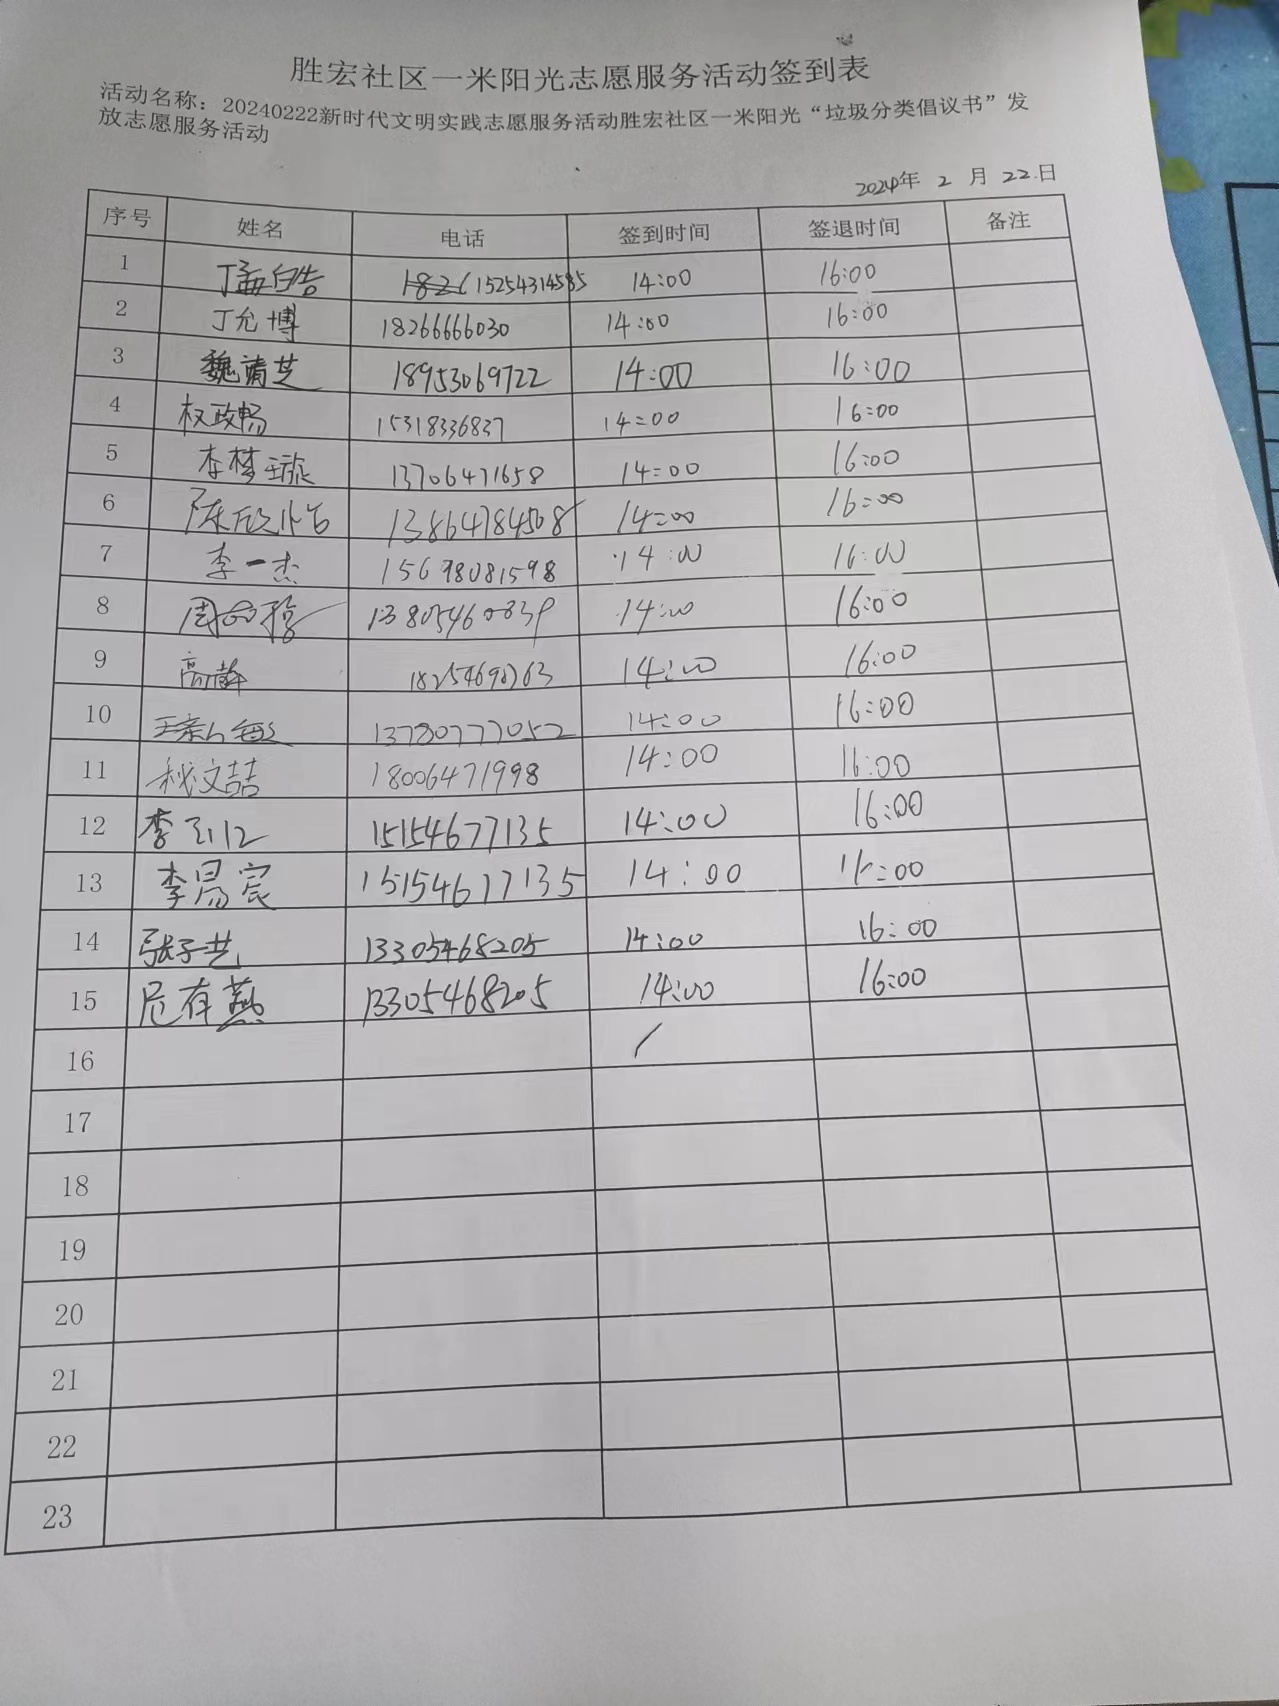 胜宏社区一米阳光志愿服务活动签到表
活动名称：20240222新时代文明实践志愿服务活动胜宏社区一米阳光“垃圾分类倡议书”发
放志愿服务活动
2024年 2 月 22日
序号 姓名 电话 签到时间 签退时间 备注
1 丁孟皓 15254314585 14:00 16:00
2 丁允博 18266666030 14:00 16:00
3 魏靖芝 18953069722 14:00 16:00
4 权政畅 15318336837 14:00 16:00
5 李梦璇 13706471658 14:00 16:00
6 陈欣怡 13864784508 14:00 16:00
7 李一杰 15698081598 14:00 16:00
8 周 13805460839 14:00 16:00
9 高 14:00 16:00
10 13780777052 14:00 16:00
11 文喆 18006471998 14:00 16:00
12 李 15154677135 14:00 16:00
13 李易宸 15154677135 14:00 16:00
14 张子艺 13305468205 14:00 16:00
15 有燕 13305468205 14:00 16:00
16
17
18
19
20
21
22
23